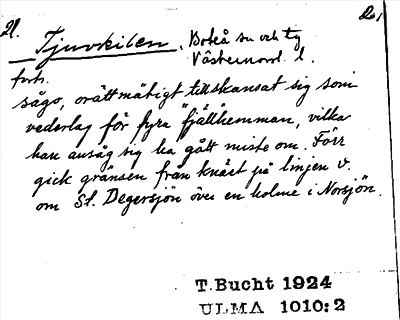 21.
Tjuvkilen. Boteå sn och tg
Västernorrl. l.
forts.
sågo, orättmätigt tillskansat sig som
vederlag för fyra "fjällhemman, vilka
han ansåg sig ha gått miste om. Förr
gick gränsen från knäet på linjen v.
om St. Degersjön över en holme i Norsjön.
T. Bucht 1924
ULMA 1010:2